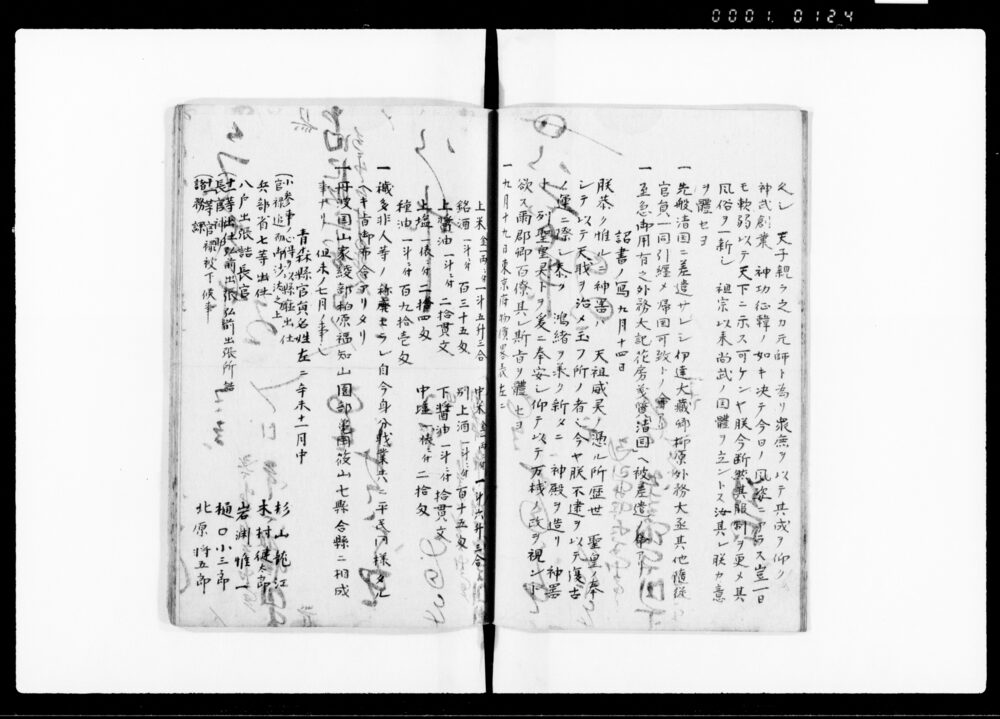 0001 0124
久シ 天子親ラ之カ元師ト為リ衆庶ヲ以テ其威ヲ仰ク
神武創業 神功征韓ノ如キ決テ今日ノ風姿ニアラス豈一日
モ軟弱以テ天下ニ示ス可ケンヤ朕今断然其服制ヲ更メ其
風俗ヲ一新シ 祖宗以来尚武ノ国體ヲ立ントス汝其レ朕カ意
ヲ體セヨ
一 先般清国ニ差遣サレシ伊達大蔵卿柳原外務大丞其他随従
官員一同引纏メ帰国可致トノ
一 至急御用有之外務大記花房義質清国ヘ被差遣ノ
詔書ノ写九月十四日
朕恭ク惟ルニ神器ハ 天祖威灵ノ憑ル所歴世 聖皇ノ奉
シテ以テ天職ヲ治メ玉フ所ノ者ニ今ヤ朕不逮ヲ以テ復古
ノ運ニ際シ忝ク 鴻緒ヲ承ク新タニ 神殿ヲ造リ 神器
ト 列聖皇灵トヲ爰ニ奉安シ仰テ以テ万機ノ政ヲ視ント
欲ス爾郡卿百僚其レ斯旨ヲ體セヨ
一 九月十九日東京府物價畧表左ニ
上米金一両ニ付一斗五升三合 中米金一両ニ付一斗六升三合
銘酒一斗ニ付百三十五匁 別上酒一斗ニ付百十五匁
上醤油一斗ニ付二拾貫文 下醤油一斗ニ付拾貫文
上塩一俵ニ付二拾四匁 中塩一俵ニ付二拾匁
種油一斗ニ付百九拾壱匁
一 穢多非人等ノ称廃セラレ自今身分職業共ニ平民同様タル
ヘキ旨御布令アリタリ
一 丹波国山家綾部柏原福知山園部亀岡篠山七縣合縣ニ相成
事ナリ 但未ノ七月ノ事也
青森縣官員名姓左ニ 辛未十一月中
(小参事ノ心得ヲ以縣廰出仕
官禄追而御沙汰之上) 杉山龍江
兵部省七等出仕 木村健太郎
八戸出張詰長官 岩渕惟一
十一等出仕弘前出張 弘前出張所詰 樋口小三郎
十二等官禄被下候事 北原将五郎